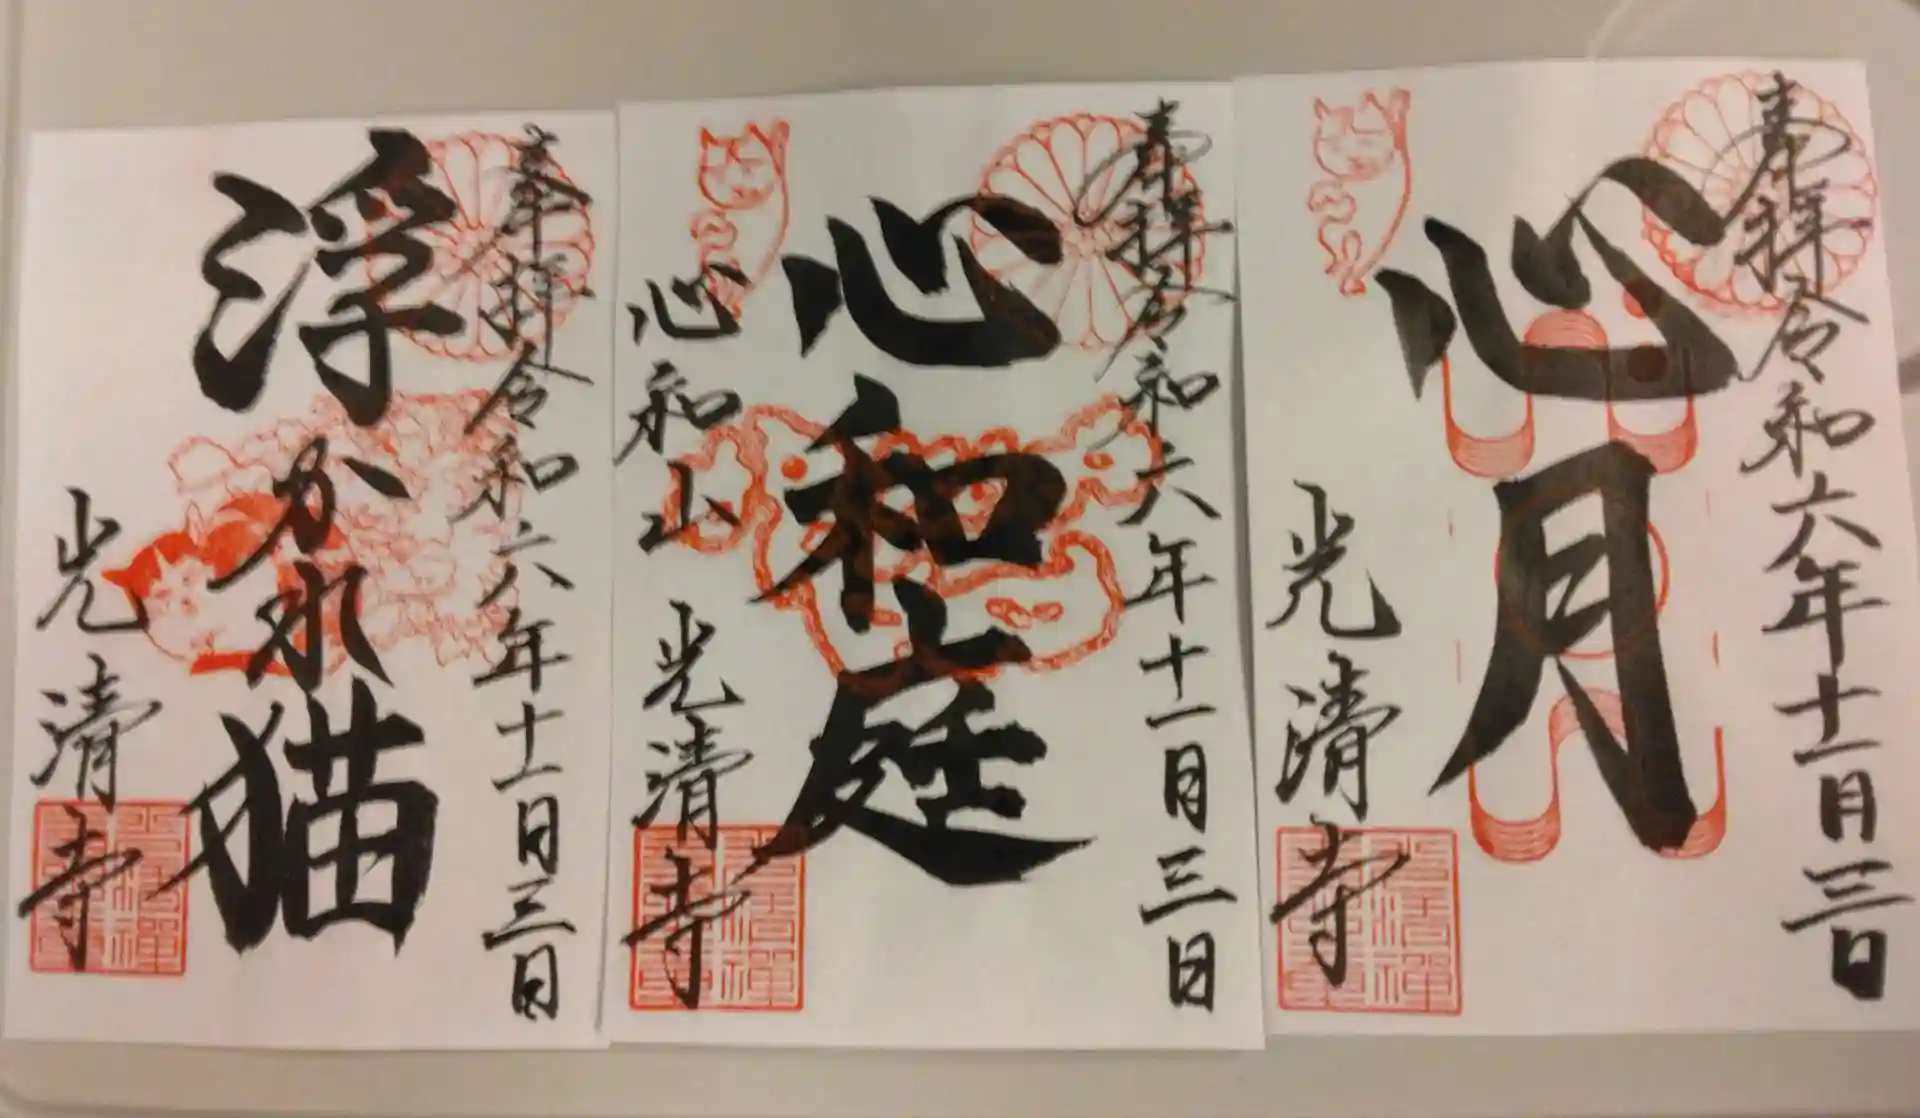 奉拝令和六年十一月三日
浮かれ猫
光清寺
奉拝令和六年十一月三日
心和庭
心和山 光清寺
奉拝令和六年十一月三日
心月
光清寺